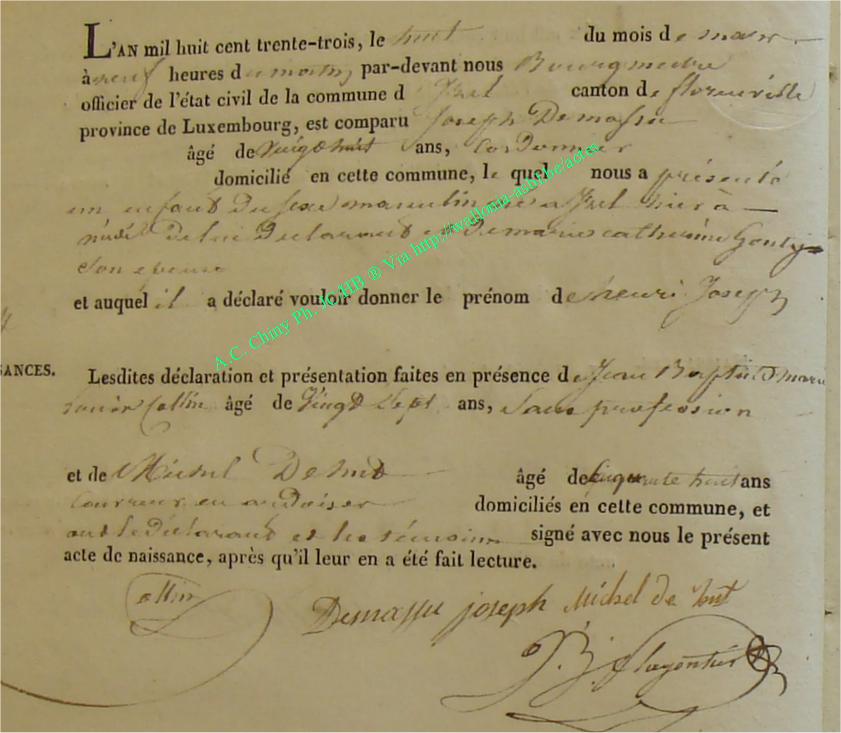 L'AN mil huit cent trente-trois, le huit du mois de mars
à neuf heures du matin, par-devant nous Bourgmestre
officier de l'état civil de la commune d'Izel canton de florenville
province de Luxembourg, est comparu Joseph Demassu
âgé de vingt huit ans, Cordonnier
domicilié en cette commune, lequel nous a présenté
un enfant du sexe masculin né a Izel hier à
midi de lui Déclarant et de marie catherine
son epouse
et auquel il a déclaré vouloir donner le prénom de henri Joseph
SANCES.
Lesdites déclaration et présentation faites en présence de Jean Baptiste marie
Collin âgé de vingt sept ans, sans profession
et de Michel Demut âgé de cinquante huit ans
Couvreur en ardoises domiciliés en cette commune, et
ont le Déclarant et les témoins signé avec nous le présent
acte de naissance, après qu'il leur en a été fait lecture.
Collin
Demassu joseph Michel de
J. B.
A.C. Chiny Ph. JCHB ® Via http://wallonia-asbl.be/actes